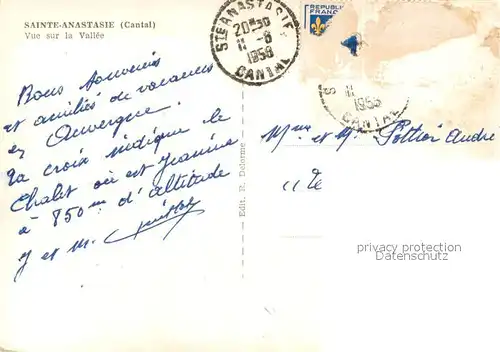 SAINTE-ANASTASIE (Cantal)
Vue sur la Vallée
Bons souvenirs
et amitiés de vacances
en Auvergne.
La croix indique le
Chalet où est Jeanine
à 850m d'altitude
J et M.
Edit. R. Delorme
STE ANASTASIE
20H30
11-8
1958
CANTAL
REPUBLI
FRANC
S
11
1958
CANTAL
Mme et M. Pothier André
privacy protection
Datenschutz